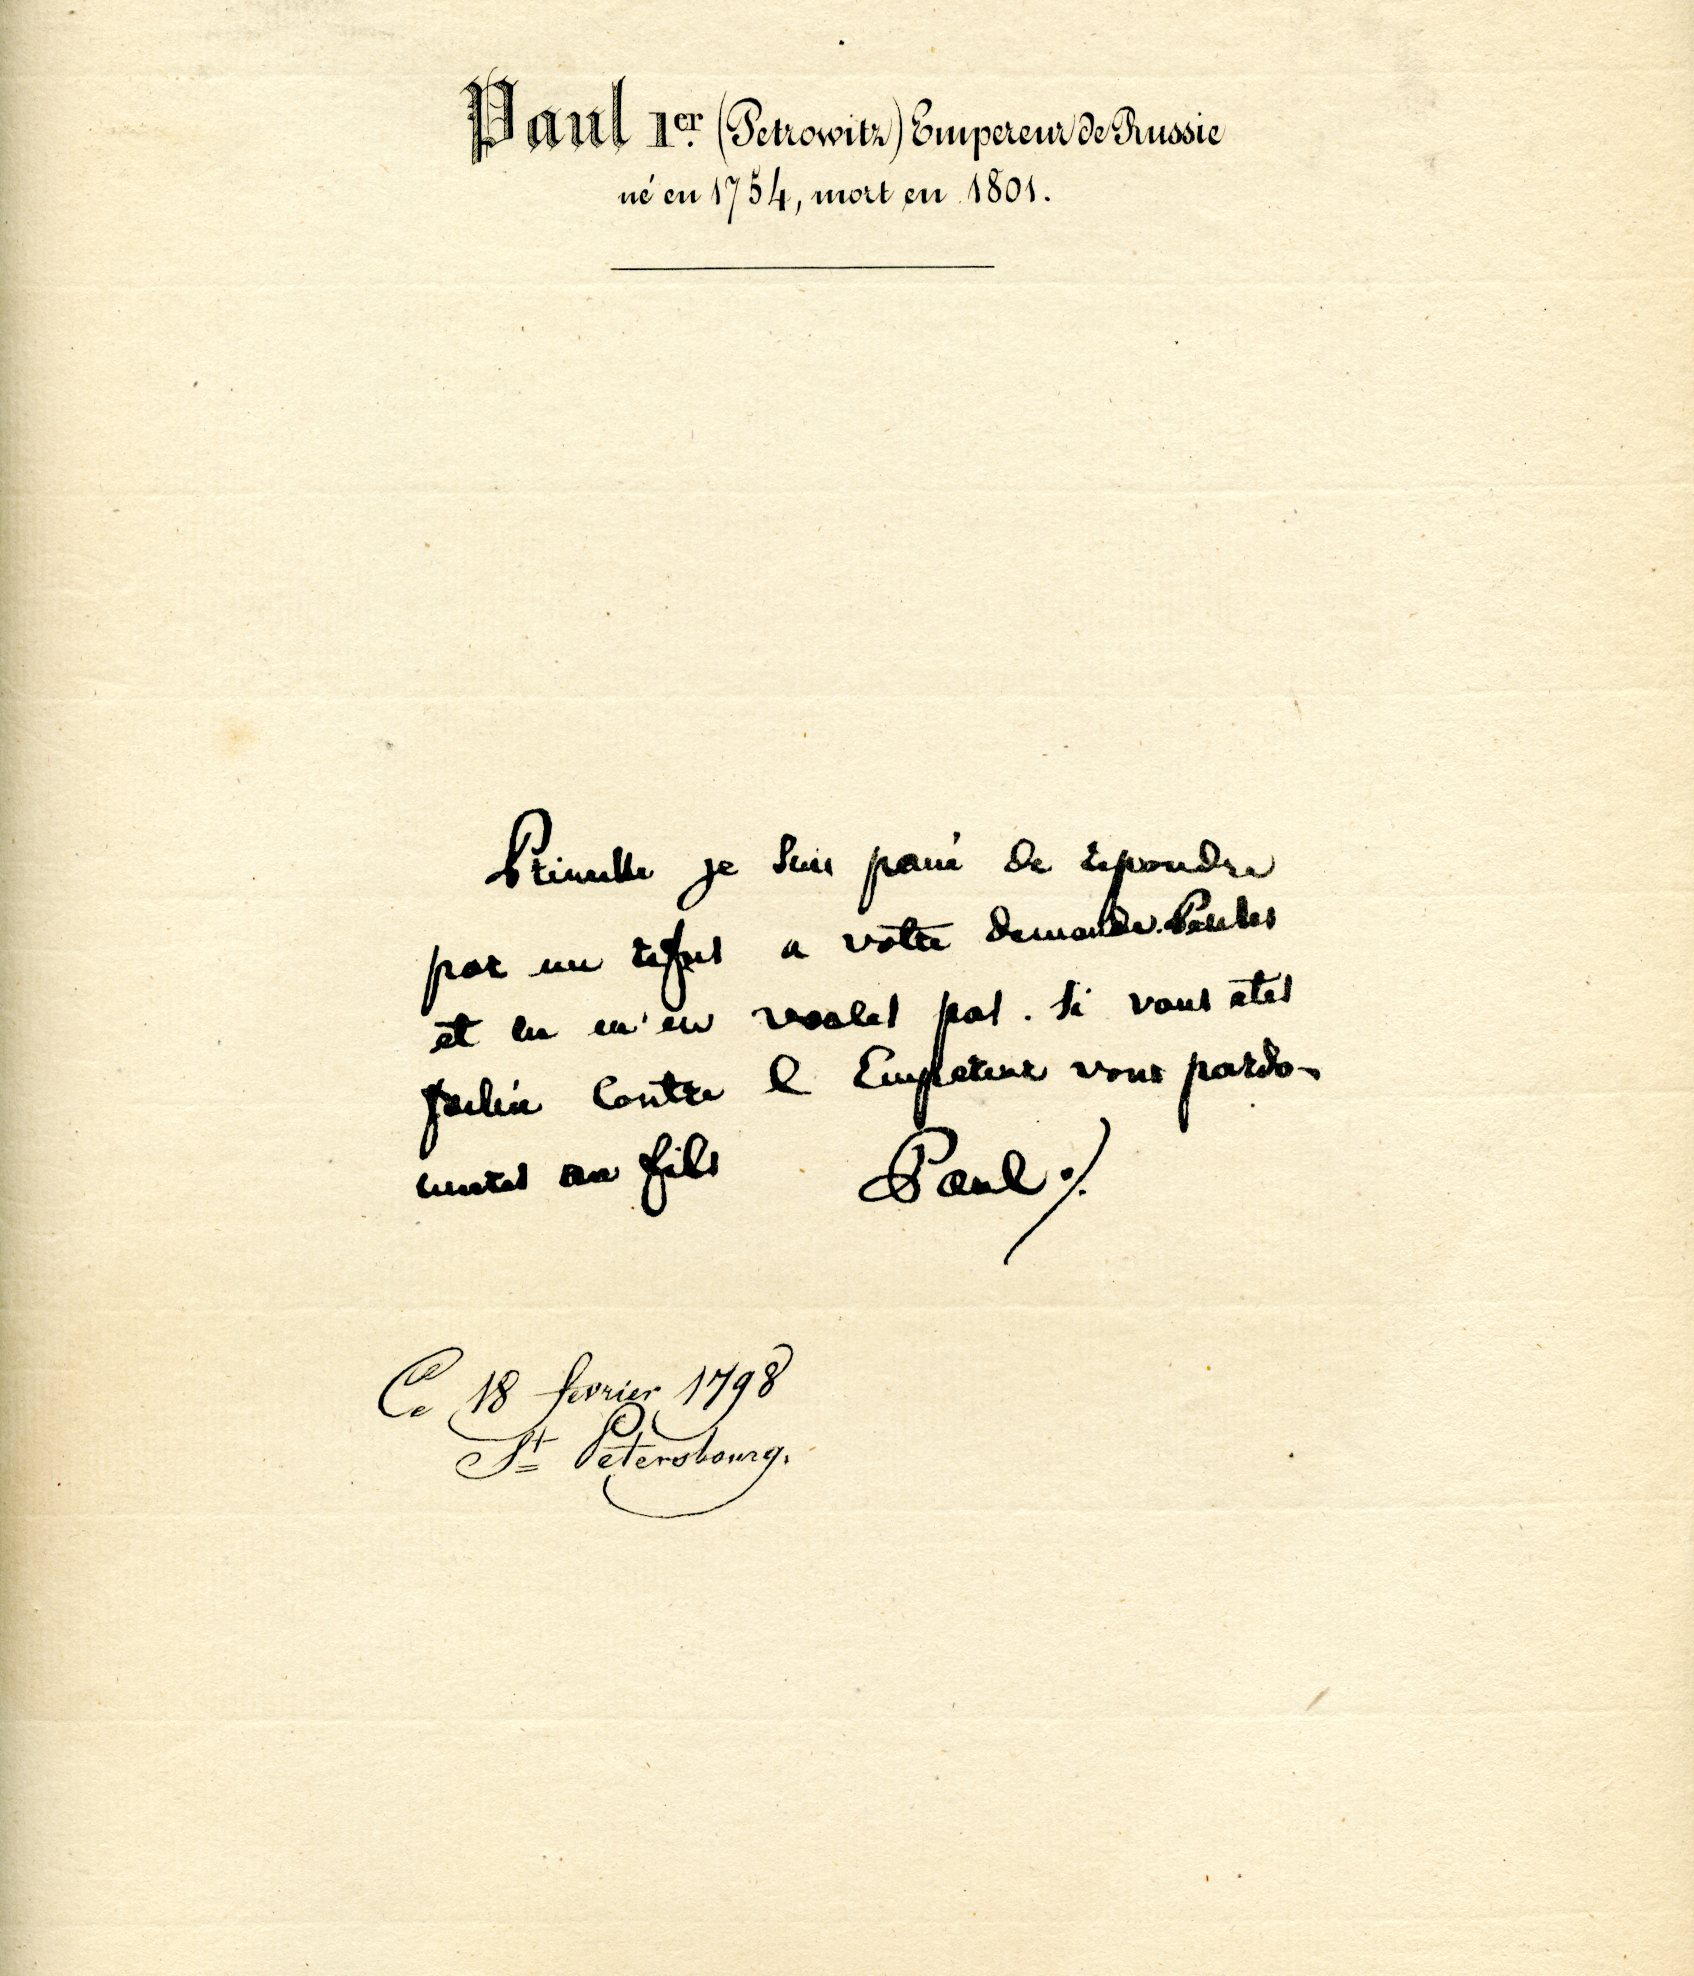 Paul 1er. (Petrowitz) Empereur de Russie
né en 1754, mort en 1801.
je suis de repondre
par un refus a votre demande.
et ne m'en voules pas. Si vous etes
contre l Empereur vous pardo-
au fils Paul ./.
Ce 18 fevrier 1798
St Petersbourg.